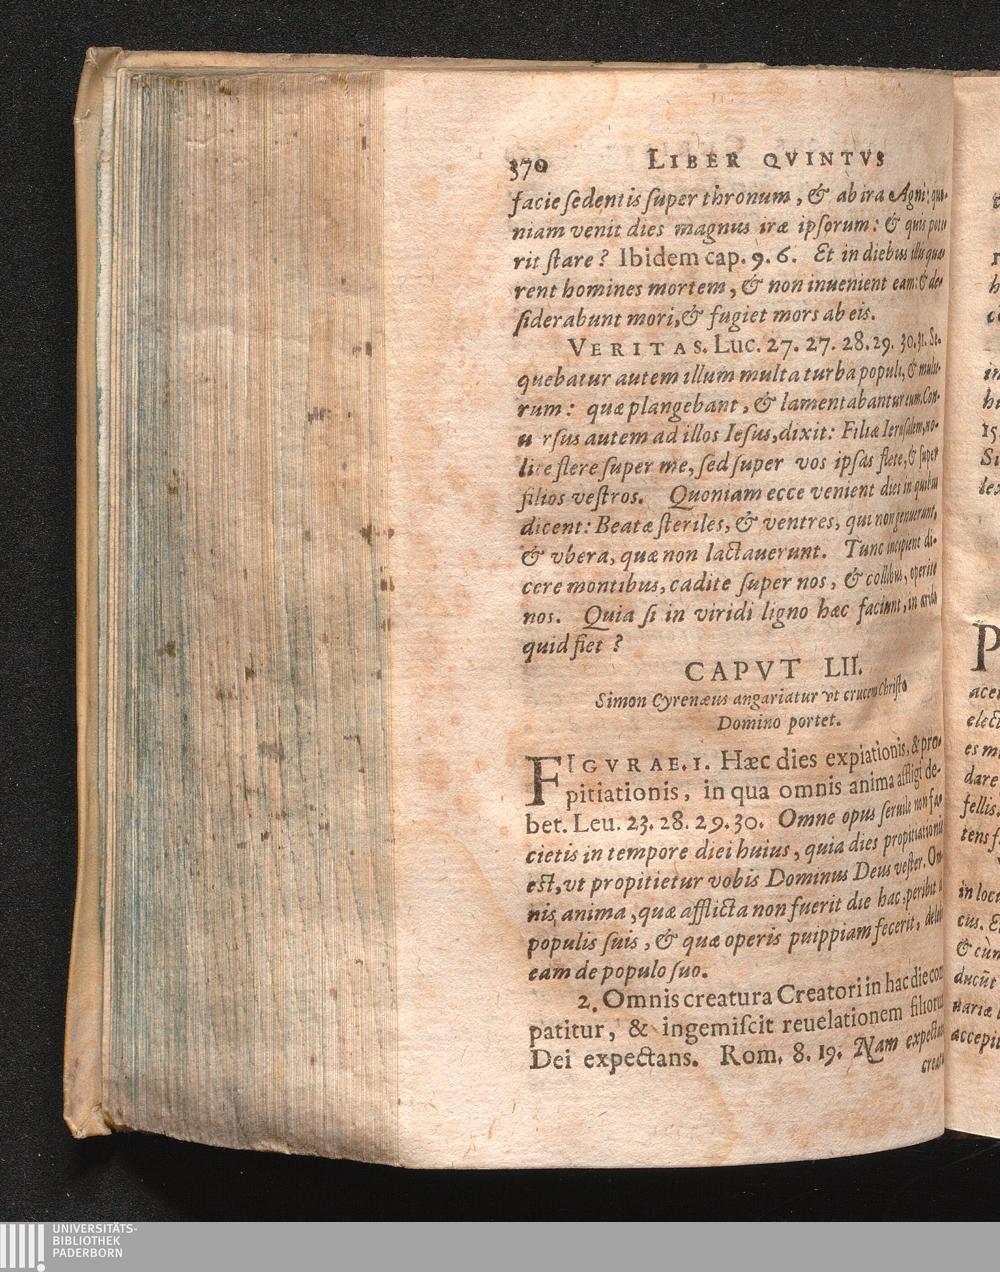 370 LIBER QVINTVS
facie sedentis super thronum, & ab ira Agni: quo-
niam venit dies magnus iræ ipsorum: & quis pote
rit stare? Ibidem cap. 9. 6. Et in diebus illis quæ
rent homines mortem, & non inuenient eam: & de-
siderabunt mori, & fugiet mors ab eis.
VERITAS. Luc. 27. 27. 28. 29. 30. 31. Se-
quebatur autem illum multa turba populi, & mulie-
rum: quæ plangebant, & lamentabantur eum. Con-
u rsus autem ad illos Iesus, dixit: Filiæ Ierusalem, no-
lite flere super me, sed super vos ipsas flete, & super
filios vestros. Quoniam ecce venient dies in quibus
dicent: Beatæ steriles, & ventres, qui non genuerunt,
& vbera, quæ non lactauerunt. Tunc incipient di-
cere montibus, cadite super nos, & collibus, operite
nos. Quia si in viridi ligno hæc faciunt, in arido
quid fiet?
CAPVT LII.
Simon Cyrenæus angariatur vt crucem Christo
Domino portet.
FIGVRAE. 1. Hæc dies expiationis, & pro-
pitiationis, in qua omnis anima affligi de-
bet. Leu. 23. 28. 29. 30. Omne opus seruile non fa-
cietis in tempore diei huius, quia dies propitiationis
est, vt propitietur vobis Dominus Deus vester. Om
nis anima, quæ afflicta non fuerit die hac, peribit
populis suis, & quæ operis puippiam fecerit, delebo
eam de populo suo.
2. Omnis creatura Creatori in hac die com
patitur, & ingemiscit reuelationem filiorum
Dei expectans. Rom. 8. 19. Nam expectatio
creatu
P
acer
elect
es m
dare
fellis.
tens f
in loc
cus. E
& cùm
ducũt
nariæ
accepit
UNIVERSITÄTS-
BIBLIOTHEK
PADERBORN